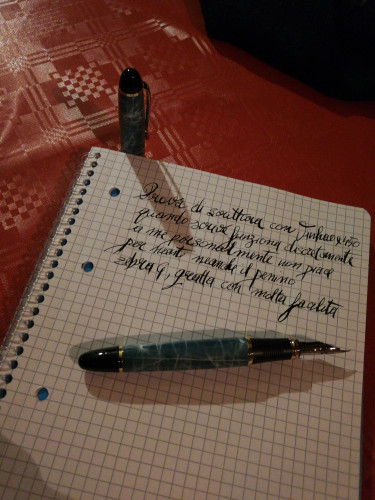 Prova di scrittura con Jinhao x450
quando scrive funziona decentemente
a me personalmente non piace
per niente neanche il pennino
zebra G, gratta con molta facilità